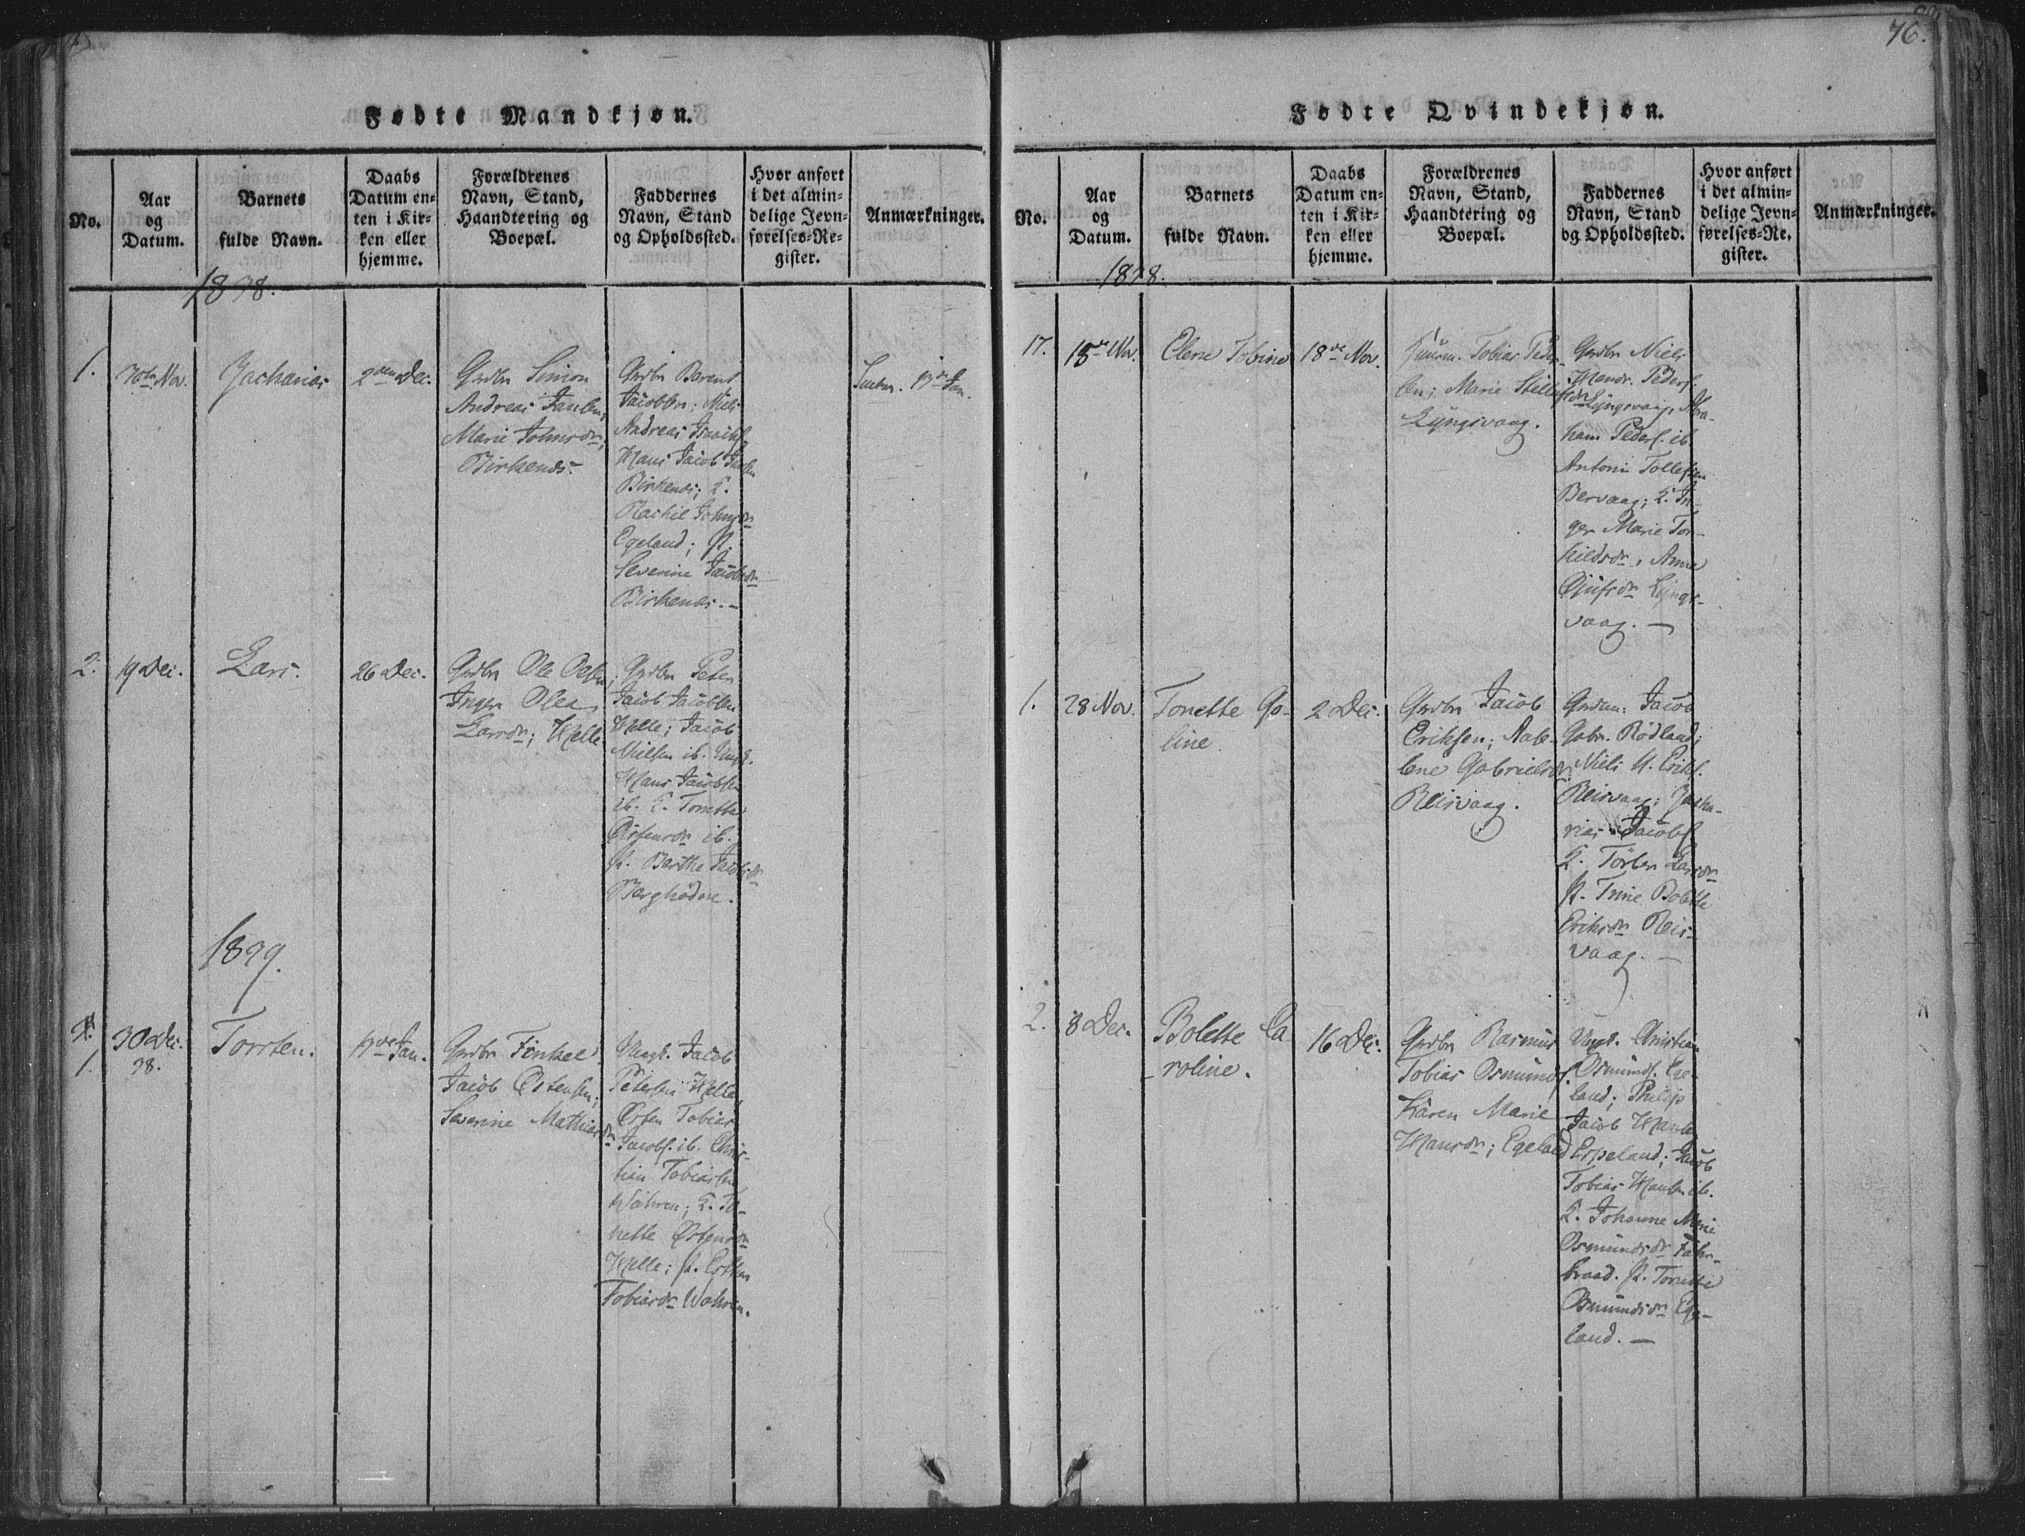 76.
Fødte Mandkjøn.
No.
Aar
og
Datum.
Barnets
fulde Navn.
Daabs
Datum en-
ten i Kir-
ken eller
hjemme.
Forældrenes
Navn, Stand,
Haandtering og
Boepæl.
Faddernes
Navn, Stand
og Opholdssted.
Hvor anført
i det almin-
delige Jevn-
førelses-Re-
gister.
Anmærkninger.
1838.
1.
30te Nov.
Zacharias
2den Dec.
Grdbr Simon
Andreas
Marie Johnsdr,
Birkenæs.
Grdbr Berent
Jacobsen; Niels
Andreas Isachs.
Hans Jacob
Birkenæs; K.
Rachel Johnsdr
Egeland; P.
Severine Jacobsdr
Birkenæs. —
Jan.
2.
19 Dec.
Lars.
26 Dec.
Grdbr Ole Olsen
Inger Olea
Larsdr; Helle
Grdbr Peter
Jacob Jacobsen
Helle; Jacob
Nielsen ib. Ungk.
Hans Jacobsen
ib. K. Tonette
Østensdr ib.
P. Berthe Jacobsdr
Berghødne.
1839.
1.
30 Dec.
38.
Torsten.
Jan.
Grdbr
Jacob Østensen;
Severine Mathiasdr
Ungk. Jacob
Petersen Helle
Østen Tobias
Jacobs. ib. Chris-
tian Tobiassen
Wahren; K. To-
nette Østensdr
Helle; P. Esther
Tobiasdr Wahren.
Fødte Qvindekjøn.
No.
Aar
og
Datum.
Barnets
fulde Navn.
Daabs
Datum en-
ten i Kir-
ken eller
hjemme.
Forældrenes
Navn, Stand,
Haandtering og
Boepæl.
Faddernes
Navn, Stand
og Opholdssted.
Hvor anført
i det almin-
delige Jevn-
førelses-Re-
gister.
Anmærkninger.
1838.
17.
15de Nov.
Elene Tobine
18de Nov.
Tobias Peder-
sen; Marie
Lyngsvaag.
Grdbr Niels
Mandr. Peders.
Lyngsvaag, Abra-
ham Peders. ib
Antoni Tollefsen
Bervaag; K. In-
ger Marie Tor-
kildsdr, Anne
Lyngs-
vaag. —
1.
28 Nov.
Tonette Go-
line.
2 Dec.
Grdbr Jacob
Eriksen; Rabe-
lene Gabrielsdr
Reisvaag.
Jacob
Gabr. Rødland;
Niels M. Eriks.
Reisvaag; Zacha-
rias Jacobs.
K. Torber Larsdr
P. Trine Bolette
Eriksdr Reis-
vaag. —
2.
8 Dec.
Bolette Ca-
roline.
16 Dec.
Grdbr Rasmus
Tobias Osmunds.
Karen Marie
Hansdr; Egeland
Ungk. Christian
Osmunds. Ege-
land; Philip
Jacob Hansen
Espeland; Jacob
Tobias Hansen ib.
K. Johanne Marie
Osmundsdr
P. Tonette
Osmundsdr Ege-
land. —